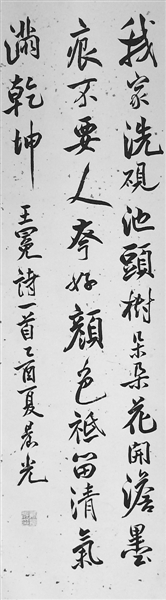 我家洗硯池頭樹朵朵花開澹墨
痕不要人夸好顏色祗留清氣
滿乾坤
王冕詩一首乙酉夏晨光